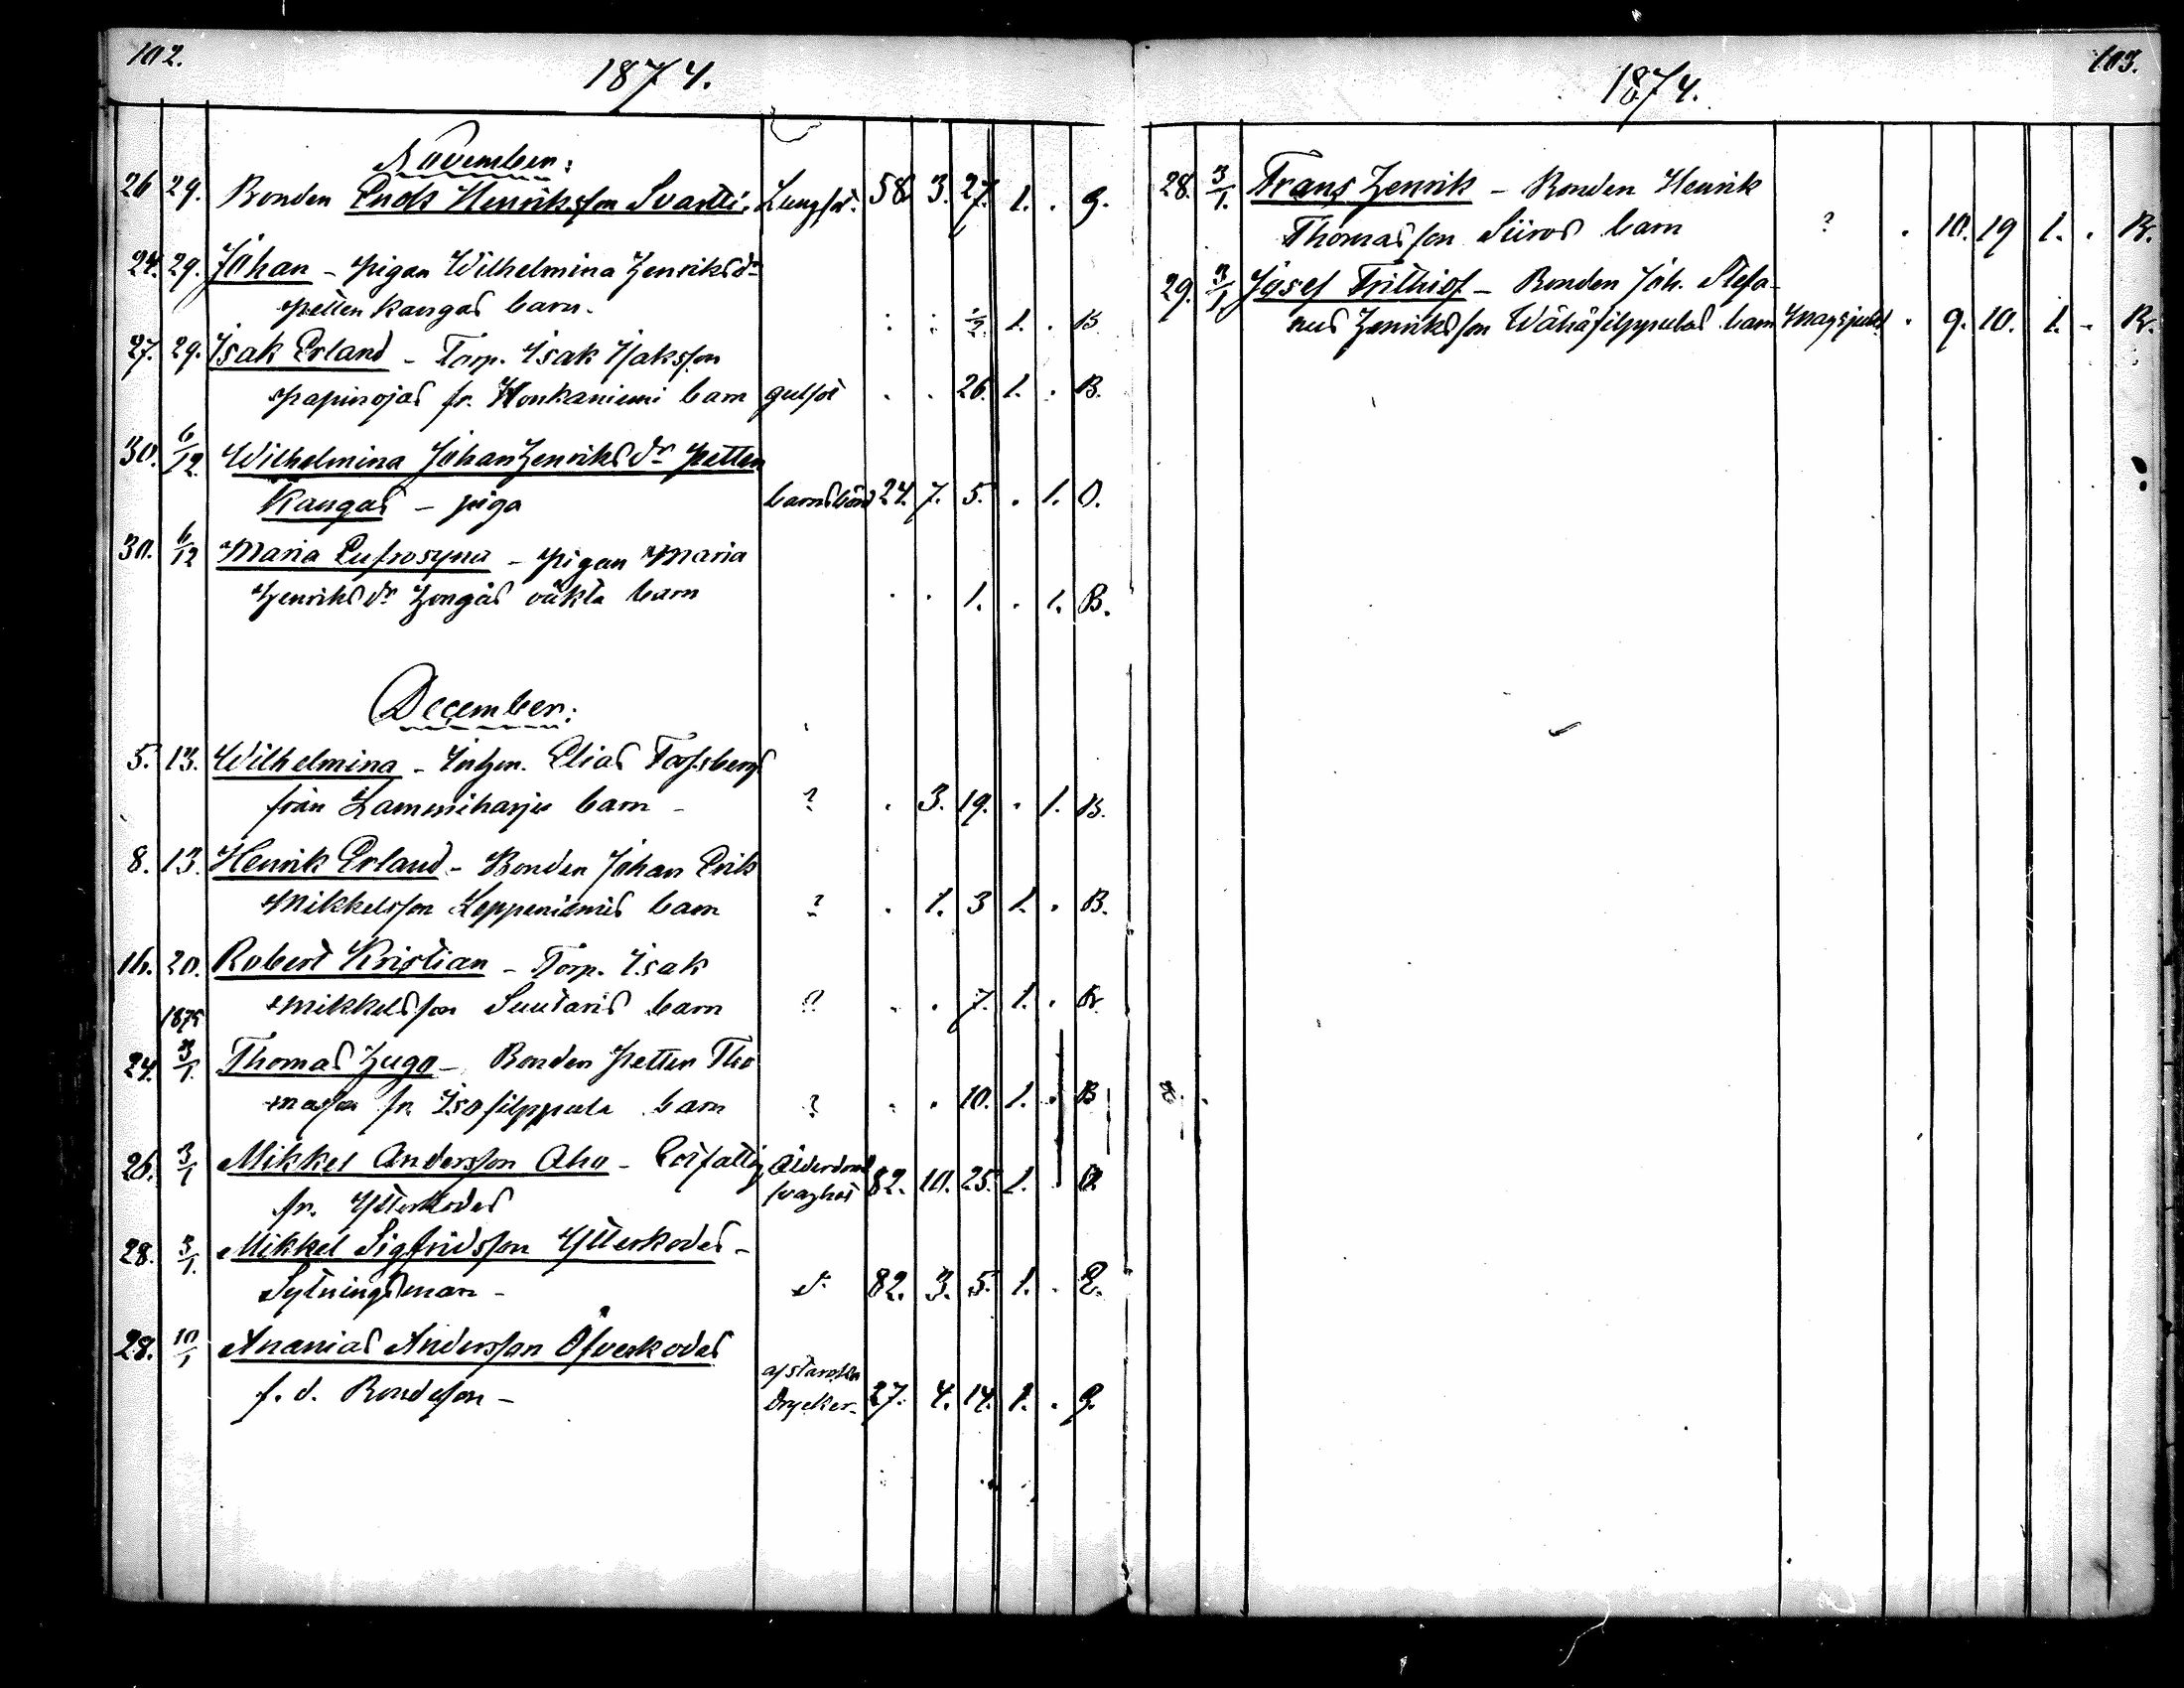 102.
1874.
November:
26 29. Bonden Enok Henriksson Svartti. Lungsot. 58 3. 27. 1. . g.
24. 29. Johan - pigan Wilhelmina Henriksdr
Pettenkangas barn. . . ½ 1. . B.
27. 29. Isak Erland - Torp. Isak Isaksson
Papinojas fr. Honkaniemi barn gulsot . . 26. 1. . B.
30. 6/12. Wilhelmina Johan Henriksdr Petten
Kangas - piga barnsbörd 24. 7. 5. . 1. O.
30. 6/12 Maria Eufrosyna - pigan Maria
Henriksdr Hongas oäkta barn . . 1. . 1. B.
December:
5. 13. Wilhelmina - Inhm. Elias Forsberg
från Lamminharju barn - ? . 3. 19. . 1. B.
8. 13. Henrik Erland - Bonden Johan Erik
Mikkelsson Leppeniemis barn ? . 1. 3 1. . B.
16. 20. Robert Kristian - Torp. Isak
Mikkelsson Suutaris barn ? . . 7. 1. . B.
1875
24. 3/1. Thomas Hugo - Bonden Petter Tho
masson fr. Isofilppula barn ? . . 10. 1. . B
26. 3/1 Mikkel Andersson Aho - fattig Ålderdoms
fr. Ytterkodes svaghet 82. 10. 25. 1. .
28. 3/1. Mikkel Sigfridsson Ytterkodes -
Sytningsman - d:o 82. 3. 5. 1. . E.
28. 10/1 Ananias Andersson Öfverkodes
f. d. Bondeson - af starka
drycker - 27. 4. 14. 1. . g.
103.
1874.
28. 3/1. Frans Henrik - Bonden Henrik
Thomasson Siiros barn ? . 10. 19 1. . B.
29. 3/1 Josef Frithiof - Bonden Joh. Stefa-
nus Henriksson Wähäfilppulas barn Magsjukd. . 9. 10. 1. - B.